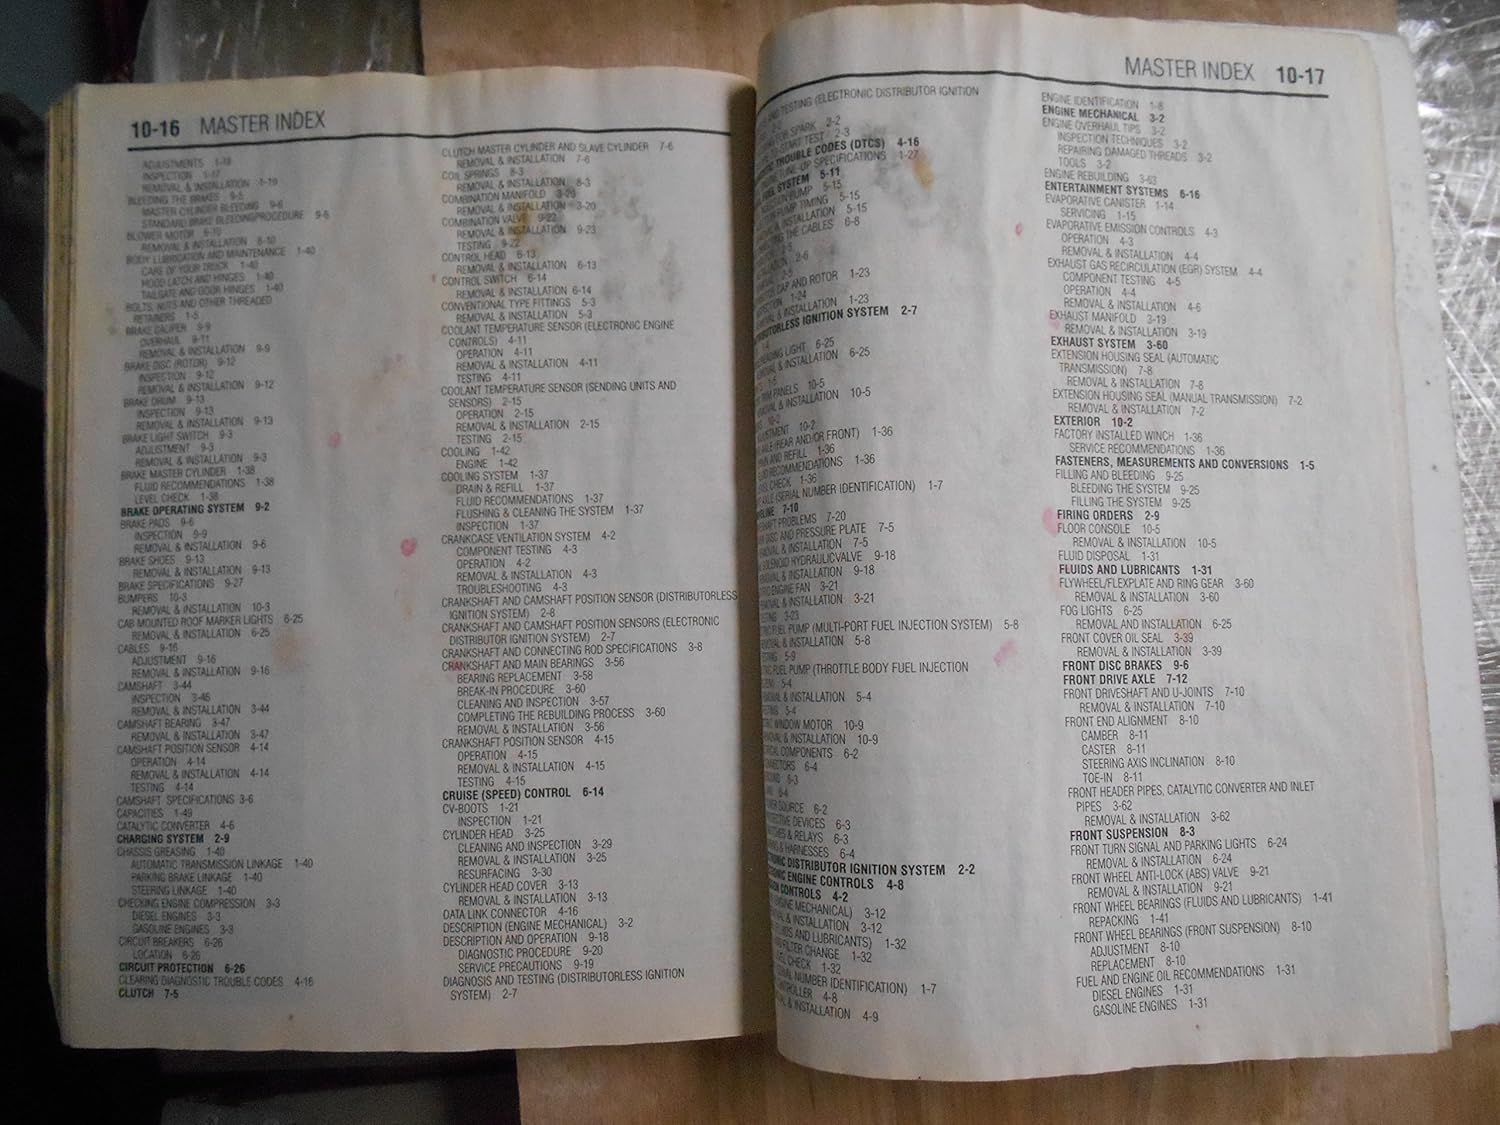 10-16 MASTER INDEX
ADJUSTMENTS 1-18
INSPECTION 1-17
REMOVAL & INSTALLATION 1-19
BLEEDING THE BRAKES 9-5
MASTER CYLINDER BLEEDING 9-6
STANDARD BRAKE BLEEDINGPROCEDURE 9-6
BLOWER MOTOR 6-10
REMOVAL & INSTALLATION 6-10
BODY LUBRICATION AND MAINTENANCE 1-40
CARE OF YOUR TRUCK 1-40
HOOD LATCH AND HINGES 1-40
TAILGATE AND DOOR HINGES 1-40
BOLTS, NUTS AND OTHER THREADED
RETAINERS 1-5
BRAKE CALIPER 9-9
OVERHAUL 9-11
REMOVAL & INSTALLATION 9-9
BRAKE DISC (ROTOR) 9-12
INSPECTION 9-12
REMOVAL & INSTALLATION 9-12
BRAKE DRUM 9-13
INSPECTION 9-13
REMOVAL & INSTALLATION 9-13
BRAKE LIGHT SWITCH 9-3
ADJUSTMENT 9-3
REMOVAL & INSTALLATION 9-3
BRAKE MASTER CYLINDER 1-38
FLUID RECOMMENDATIONS 1-38
LEVEL CHECK 1-38
BRAKE OPERATING SYSTEM 9-2
BRAKE PADS 9-6
INSPECTION 9-9
REMOVAL & INSTALLATION 9-6
BRAKE SHOES 9-13
REMOVAL & INSTALLATION 9-13
BRAKE SPECIFICATIONS 9-27
BUMPERS 10-3
REMOVAL & INSTALLATION 10-3
CAB MOUNTED ROOF MARKER LIGHTS 6-25
REMOVAL & INSTALLATION 6-25
CABLES 9-16
ADJUSTMENT 9-16
REMOVAL & INSTALLATION 9-16
CAMSHAFT 3-44
INSPECTION 3-46
REMOVAL & INSTALLATION 3-44
CAMSHAFT BEARING 3-47
REMOVAL & INSTALLATION 3-47
CAMSHAFT POSITION SENSOR 4-14
OPERATION 4-14
REMOVAL & INSTALLATION 4-14
TESTING 4-14
CAMSHAFT SPECIFICATIONS 3-6
CAPACITIES 1-49
CATALYTIC CONVERTER 4-6
CHARGING SYSTEM 2-9
CHASSIS GREASING 1-40
AUTOMATIC TRANSMISSION LINKAGE 1-40
PARKING BRAKE LINKAGE 1-40
STEERING LINKAGE 1-40
CHECKING ENGINE COMPRESSION 3-3
DIESEL ENGINES 3-3
GASOLINE ENGINES 3-3
CIRCUIT BREAKERS 6-26
LOCATION 6-26
CIRCUIT PROTECTION 6-26
CLEARING DIAGNOSTIC TROUBLE CODES 4-16
CLUTCH 7-5
CLUTCH MASTER CYLINDER AND SLAVE CYLINDER 7-6
REMOVAL & INSTALLATION 7-6
COIL SPRINGS 8-3
REMOVAL & INSTALLATION 8-3
COMBINATION MANIFOLD 3-20
REMOVAL & INSTALLATION 3-20
COMBINATION VALVE 9-22
REMOVAL & INSTALLATION 9-23
TESTING 9-22
CONTROL HEAD 6-13
REMOVAL & INSTALLATION 6-13
CONTROL SWITCH 6-14
REMOVAL & INSTALLATION 6-14
CONVENTIONAL TYPE FITTINGS 5-3
REMOVAL & INSTALLATION 5-3
COOLANT TEMPERATURE SENSOR (ELECTRONIC ENGINE
CONTROLS) 4-11
OPERATION 4-11
REMOVAL & INSTALLATION 4-11
TESTING 4-11
COOLANT TEMPERATURE SENSOR (SENDING UNITS AND
SENSORS) 2-15
OPERATION 2-15
REMOVAL & INSTALLATION 2-15
TESTING 2-15
COOLING 1-42
ENGINE 1-42
COOLING SYSTEM 1-37
DRAIN & REFILL 1-37
FLUID RECOMMENDATIONS 1-37
FLUSHING & CLEANING THE SYSTEM 1-37
INSPECTION 1-37
CRANKCASE VENTILATION SYSTEM 4-2
COMPONENT TESTING 4-3
OPERATION 4-2
REMOVAL & INSTALLATION 4-3
TROUBLESHOOTING 4-3
CRANKSHAFT AND CAMSHAFT POSITION SENSOR (DISTRIBUTORLESS
IGNITION SYSTEM) 2-8
CRANKSHAFT AND CAMSHAFT POSITION SENSORS (ELECTRONIC
DISTRIBUTOR IGNITION SYSTEM) 2-7
CRANKSHAFT AND CONNECTING ROD SPECIFICATIONS 3-8
CRANKSHAFT AND MAIN BEARINGS 3-56
BEARING REPLACEMENT 3-58
BREAK-IN PROCEDURE 3-60
CLEANING AND INSPECTION 3-57
COMPLETING THE REBUILDING PROCESS 3-60
REMOVAL & INSTALLATION 3-56
CRANKSHAFT POSITION SENSOR 4-15
OPERATION 4-15
REMOVAL & INSTALLATION 4-15
TESTING 4-15
CRUISE (SPEED) CONTROL 6-14
CV-BOOTS 1-21
INSPECTION 1-21
CYLINDER HEAD 3-25
CLEANING AND INSPECTION 3-29
REMOVAL & INSTALLATION 3-25
RESURFACING 3-30
CYLINDER HEAD COVER 3-13
REMOVAL & INSTALLATION 3-13
DATA LINK CONNECTOR 4-16
DESCRIPTION (ENGINE MECHANICAL) 3-2
DESCRIPTION AND OPERATION 9-18
DIAGNOSTIC PROCEDURE 9-20
SERVICE PRECAUTIONS 9-19
DIAGNOSIS AND TESTING (DISTRIBUTORLESS IGNITION
SYSTEM) 2-7
MASTER INDEX 10-17
TESTING (ELECTRONIC DISTRIBUTOR IGNITION
SPARK 2-2
START TEST 2-3
TROUBLE CODES (DTCS) 4-16
SPECIFICATIONS 1-27
SYSTEM 5-11
PUMP 5-15
TIMING 5-15
INSTALLATION 5-15
THE CABLES 6-8
2-5
2-6
2-5
CAP AND ROTOR 1-23
1-24
INSTALLATION 1-23
IGNITION SYSTEM 2-7
LIGHT 6-25
INSTALLATION 6-25
1-5
PANELS 10-5
INSTALLATION 10-5
10-2
10-2
(REAR AND/OR FRONT) 1-36
AND REFILL 1-36
RECOMMENDATIONS 1-36
CHECK 1-36
(SERIAL NUMBER IDENTIFICATION) 1-7
7-10
PROBLEMS 7-20
DISC AND PRESSURE PLATE 7-5
INSTALLATION 7-5
HYDRAULICVALVE 9-18
INSTALLATION 9-18
ENGINE FAN 3-21
INSTALLATION 3-21
3-23
FUEL PUMP (MULTI-PORT FUEL INJECTION SYSTEM) 5-8
& INSTALLATION 5-8
5-9
FUEL PUMP (THROTTLE BODY FUEL INJECTION
5-4
& INSTALLATION 5-4
5-4
WINDOW MOTOR 10-9
& INSTALLATION 10-9
COMPONENTS 6-2
6-4
6-3
6-4
SOURCE 6-2
DEVICES 6-3
& RELAYS 6-3
& HARNESSES 6-4
DISTRIBUTOR IGNITION SYSTEM 2-2
ENGINE CONTROLS 4-8
CONTROLS 4-2
MECHANICAL) 3-12
& INSTALLATION 3-12
AND LUBRICANTS) 1-32
FILTER CHANGE 1-32
CHECK 1-32
NUMBER IDENTIFICATION) 1-7
4-8
& INSTALLATION 4-9
ENGINE IDENTIFICATION 1-8
ENGINE MECHANICAL 3-2
ENGINE OVERHAUL TIPS 3-2
INSPECTION TECHNIQUES 3-2
REPAIRING DAMAGED THREADS 3-2
TOOLS 3-2
ENGINE REBUILDING 3-63
ENTERTAINMENT SYSTEMS 6-16
EVAPORATIVE CANISTER 1-14
SERVICING 1-15
EVAPORATIVE EMISSION CONTROLS 4-3
OPERATION 4-3
REMOVAL & INSTALLATION 4-4
EXHAUST GAS RECIRCULATION (EGR) SYSTEM 4-4
COMPONENT TESTING 4-5
OPERATION 4-4
REMOVAL & INSTALLATION 4-6
EXHAUST MANIFOLD 3-19
REMOVAL & INSTALLATION 3-19
EXHAUST SYSTEM 3-60
EXTENSION HOUSING SEAL (AUTOMATIC
TRANSMISSION) 7-8
REMOVAL & INSTALLATION 7-8
EXTENSION HOUSING SEAL (MANUAL TRANSMISSION) 7-2
REMOVAL & INSTALLATION 7-2
EXTERIOR 10-2
FACTORY INSTALLED WINCH 1-36
SERVICE RECOMMENDATIONS 1-36
FASTENERS, MEASUREMENTS AND CONVERSIONS 1-5
FILLING AND BLEEDING 9-25
BLEEDING THE SYSTEM 9-25
FILLING THE SYSTEM 9-25
FIRING ORDERS 2-9
FLOOR CONSOLE 10-5
REMOVAL & INSTALLATION 10-5
FLUID DISPOSAL 1-31
FLUIDS AND LUBRICANTS 1-31
FLYWHEEL/FLEXPLATE AND RING GEAR 3-60
REMOVAL & INSTALLATION 3-60
FOG LIGHTS 6-25
REMOVAL AND INSTALLATION 6-25
FRONT COVER OIL SEAL 3-39
REMOVAL & INSTALLATION 3-39
FRONT DISC BRAKES 9-6
FRONT DRIVE AXLE 7-12
FRONT DRIVESHAFT AND U-JOINTS 7-10
REMOVAL & INSTALLATION 7-10
FRONT END ALIGNMENT 8-10
CAMBER 8-11
CASTER 8-11
STEERING AXIS INCLINATION 8-10
TOE-IN 8-11
FRONT HEADER PIPES, CATALYTIC CONVERTER AND INLET
PIPES 3-62
REMOVAL & INSTALLATION 3-62
FRONT SUSPENSION 8-3
FRONT TURN SIGNAL AND PARKING LIGHTS 6-24
REMOVAL & INSTALLATION 6-24
FRONT WHEEL ANTI-LOCK (ABS) VALVE 9-21
REMOVAL & INSTALLATION 9-21
FRONT WHEEL BEARINGS (FLUIDS AND LUBRICANTS) 1-41
REPACKING 1-41
FRONT WHEEL BEARINGS (FRONT SUSPENSION) 8-10
ADJUSTMENT 8-10
REPLACEMENT 8-10
FUEL AND ENGINE OIL RECOMMENDATIONS 1-31
DIESEL ENGINES 1-31
GASOLINE ENGINES 1-31